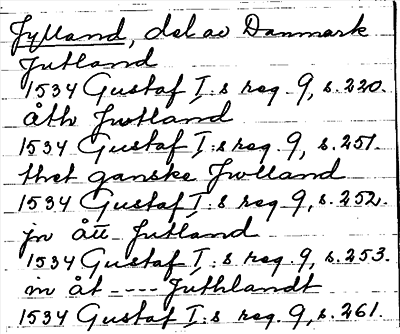 Jylland, del av Danmark
Jutland
1534 Gustaf I:s reg. 9, s. 220.
åth Jwtland
1534 Gustaf I:s reg. 9, s. 251.
thet ganske Jwtland
1534 Gustaf I:s reg. 9, s. 252.
jn ått Jutland
1534 Gustaf I:s reg. 9, s. 253.
in åt ---- Juthlandt
1534 Gustaf I:s reg. 9, s. 261.